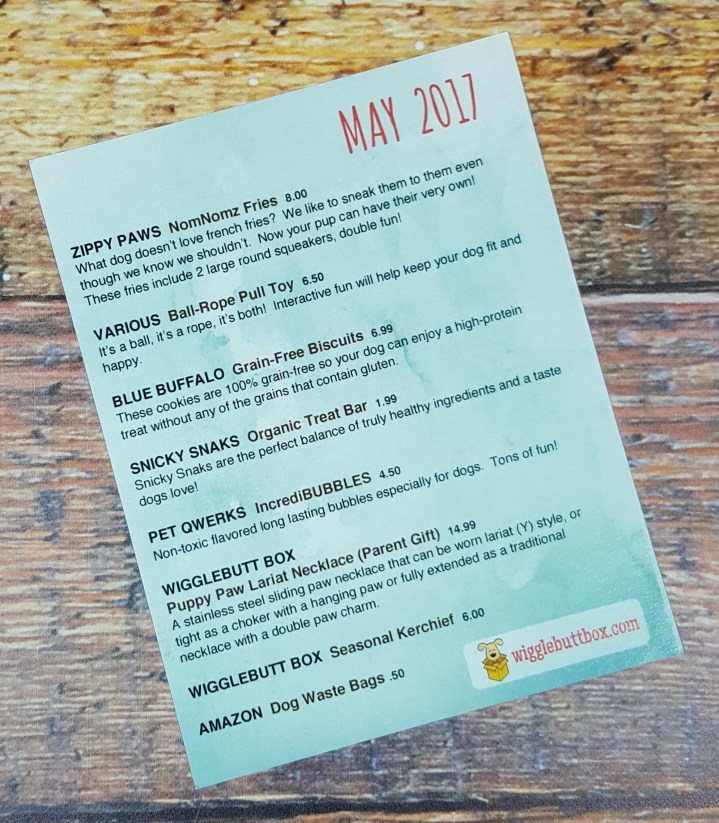 MAY 2017
ZIPPY PAWS NomNomz Fries 8.00
What dog doesn't love french fries? We like to sneak them to them even
though we know we shouldn't. Now your pup can have their very own!
These fries include 2 large round squeakers, double fun!
VARIOUS Ball-Rope Pull Toy 6.50
It's a ball, it's a rope, it's both! Interactive fun will help keep your dog fit and
happy.
BLUE BUFFALO Grain-Free Biscuits 6.99
These cookies are 100% grain-free so your dog can enjoy a high-protein
treat without any of the grains that contain gluten.
SNICKY SNAKS Organic Treat Bar 1.99
Snicky Snaks are the perfect balance of truly healthy ingredients and a taste
dogs love!
PET QWERKS IncrediBUBBLES 4.50
Non-toxic flavored long lasting bubbles especially for dogs. Tons of fun!
WIGGLEBUTT BOX
Puppy Paw Lariat Necklace (Parent Gift) 14.99
A stainless steel sliding paw necklace that can be worn lariat (Y) style, or
tight as a choker with a hanging paw or fully extended as a traditional
necklace with a double paw charm.
WIGGLEBUTT BOX Seasonal Kerchief 6.00
AMAZON Dog Waste Bags .50
wigglebuttbox.com